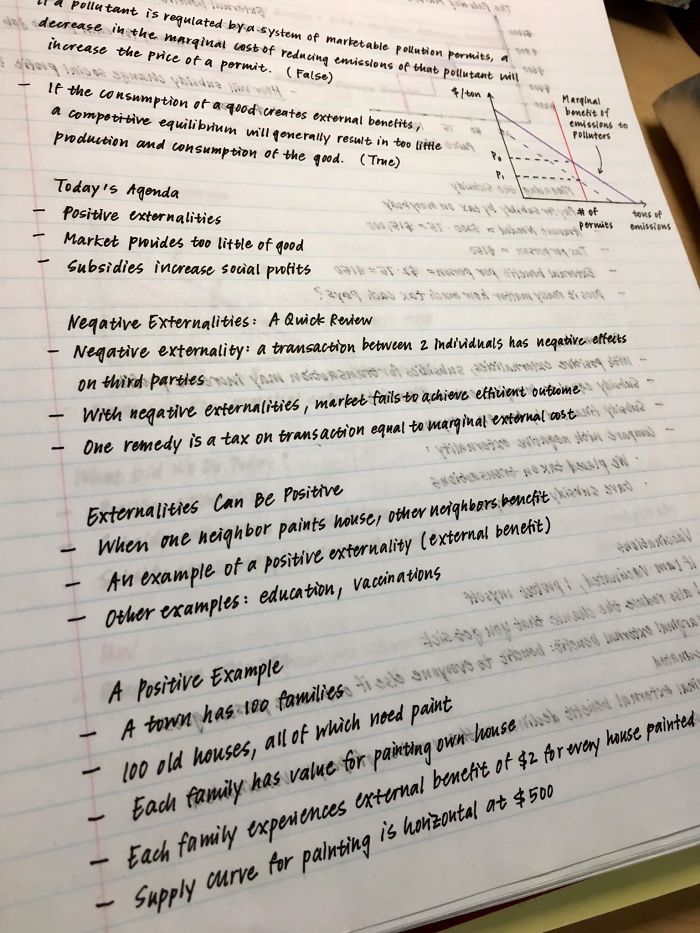 If a pollutant is regulated by a system of marketable pollution permits, a
decrease in the marginal cost of reducing emissions of that pollutant will
increase the price of a permit. (False)
– If the consumption of a good creates external benefits,
a competitive equilibrium will generally result in too little
production and consumption of the good. (True)
$/ton
Marginal
benefit of
emissions to
polluters
P₀
P₁
# of
permits
tons of
emissions
Today's Agenda
– Positive externalities
– Market provides too little of good
– Subsidies increase social profits
Negative Externalities: A Quick Review
– Negative externality: a transaction between 2 individuals has negative effects
on third parties
– With negative externalities, market fails to achieve efficient outcome
– One remedy is a tax on transaction equal to marginal external cost
Externalities Can Be Positive
– When one neighbor paints house, other neighbors benefit
– An example of a positive externality (external benefit)
– Other examples: education, vaccinations
A Positive Example
– A town has 100 families
– 100 old houses, all of which need paint
– Each family has value for painting own house
– Each family experiences external benefit of $2 for every house painted
– Supply curve for painting is horizontal at $500